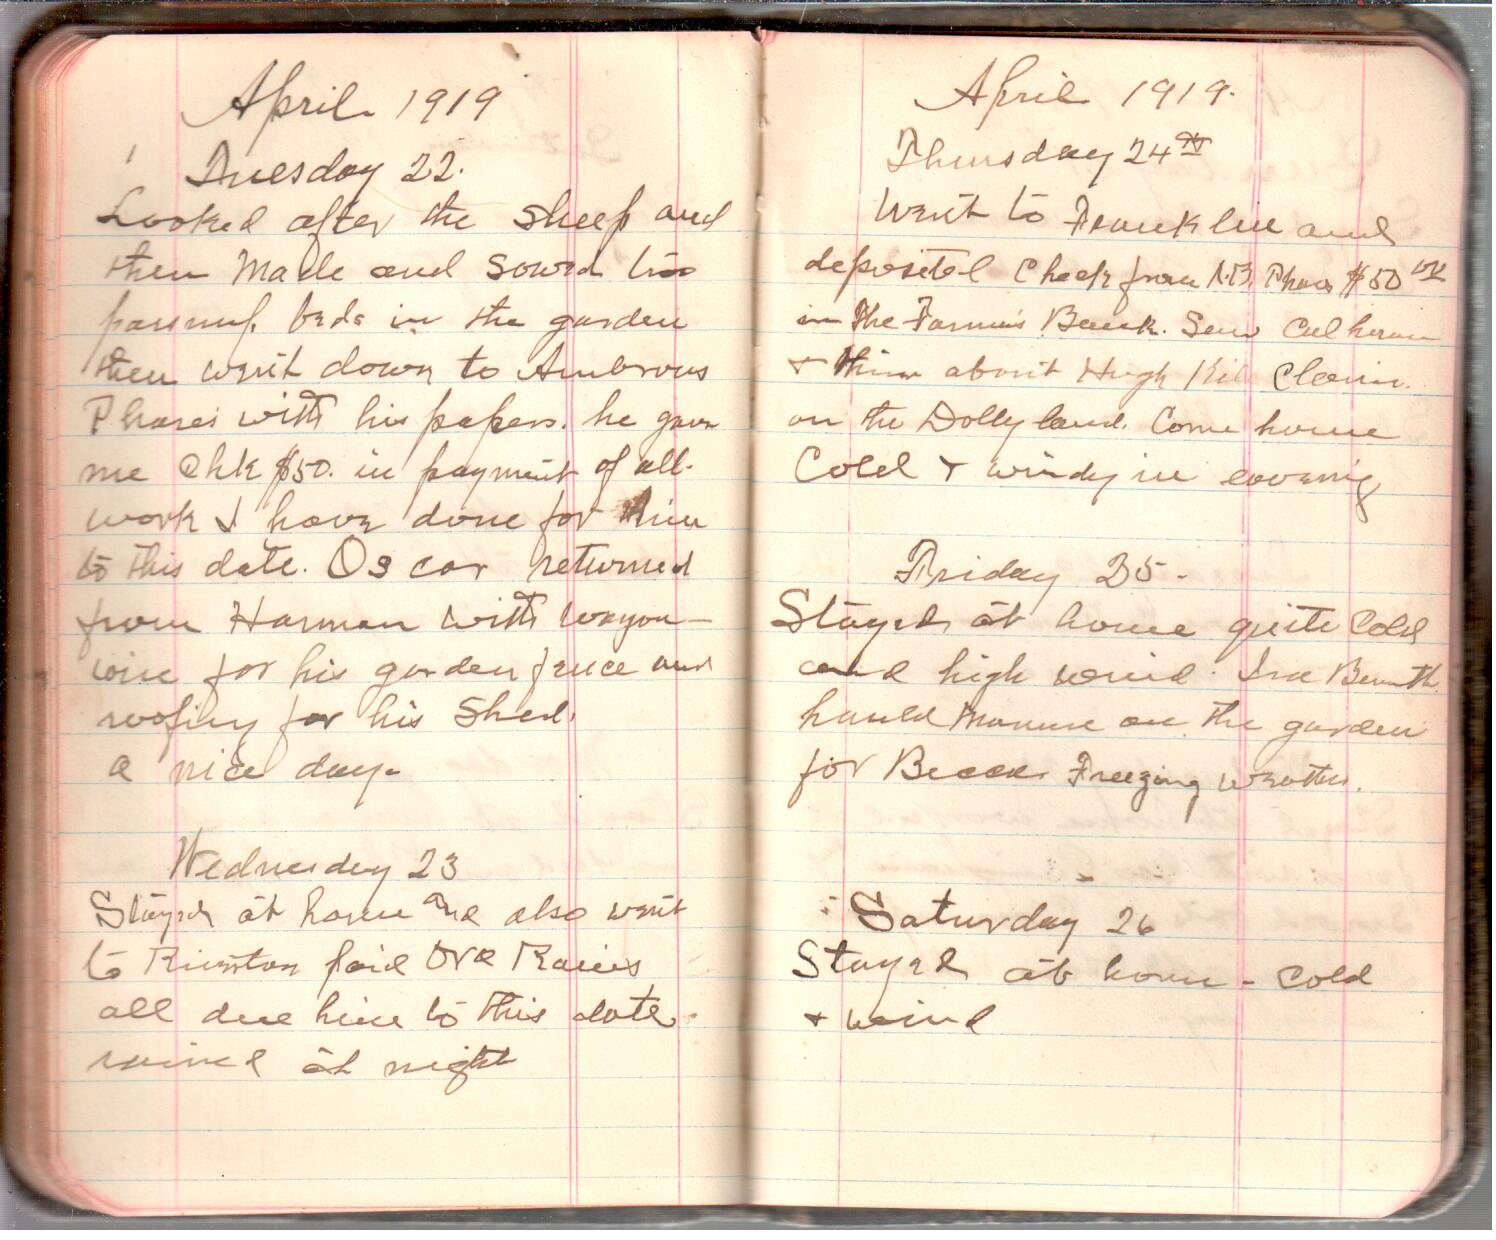 April 1919
Tuesday 22.
Looked after the sheep and
then made and sowed two
parsnip beds in the garden
then went down to Ambrous
Phares with his papers. he gave
me Chk $50. in payment of all
work I have done for him
to this date. Oscar returned
from Harman with wagon-
wire for his garden fence and
roofing for his Shed.
a nice day.
Wednesday 23
Stayed at home and also went
to Riverton paid Ord Raines
all due him to this date.
rained at night
April 1919.
Thursday 24th
Went to Franklin and
deposited Check from A.B. Phares $50
in the Farmers Bank. Saw Calhoun
+ him about Hugh Claim.
on the Dolly land. Come home
Cold + windy in evening
Friday 25-
Stayed at home quite Cold
and high wind. Ira
hauld Manure on the garden
for Freezing weather.
Saturday 26
Stayed at home - cold
+ wind